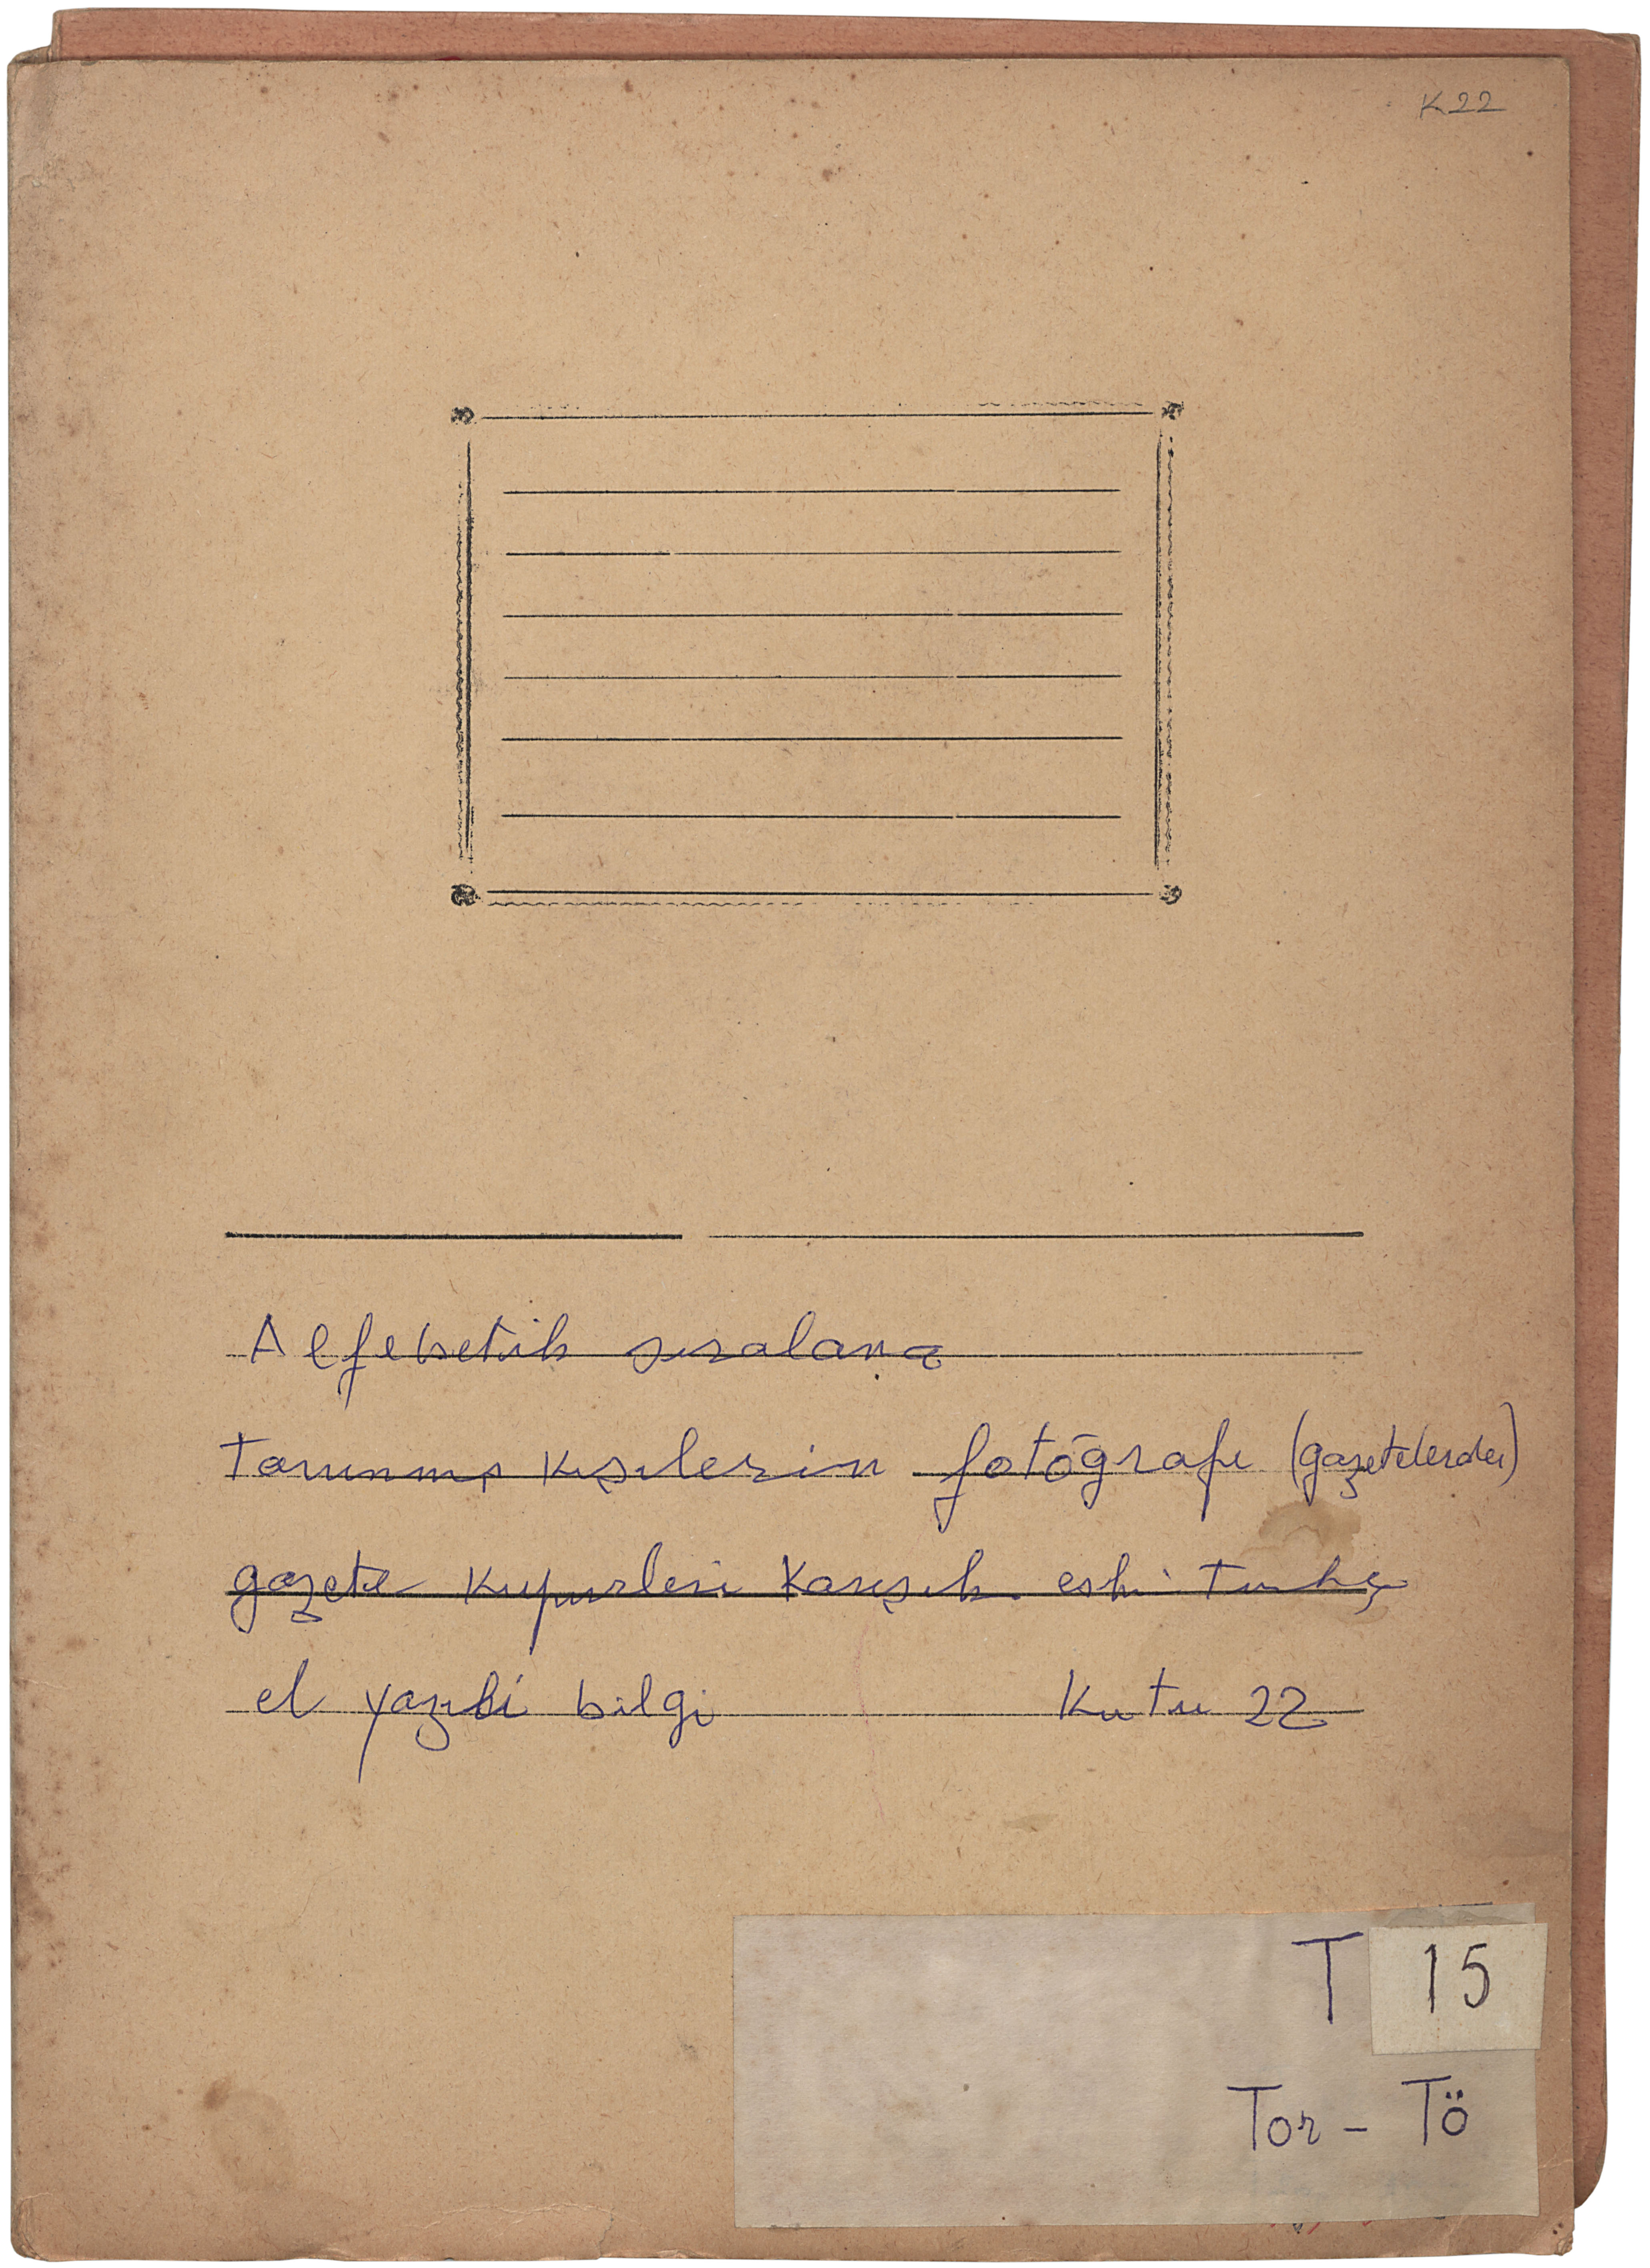 K22
Alfebetik sıralama
Tanınmış kişilerin fotoğrafı (gazetelerden)
gazete kupürleri Karışık eski Türkçe
el yazılı bilgi Kutu 22
T 15
Tor - Tö